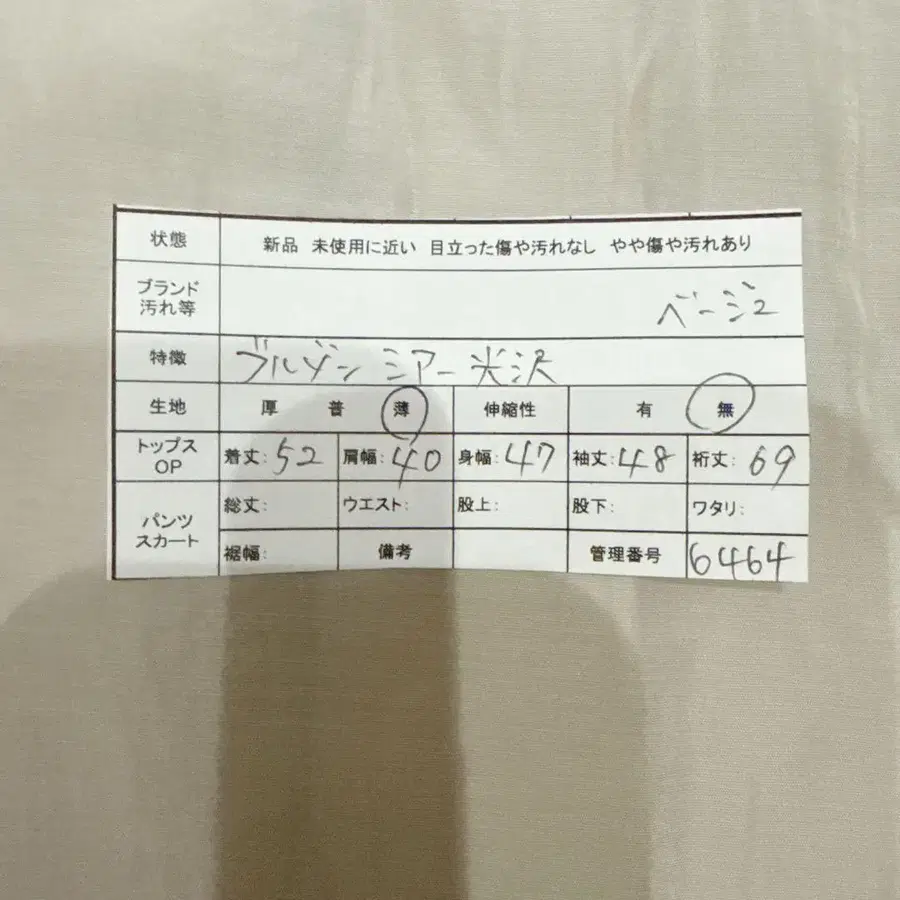 状態 新品 未使用に近い 目立った傷や汚れなし やや傷や汚れあり
ブランド
汚れ等 ベージュ
特徴 ブルゾン シアー 光沢
生地 厚 普 薄 伸縮性 有 無
トップス
OP 着丈:52 肩幅:40 身幅:47 袖丈:48 裄丈:69
パンツ
スカート 総丈: ウエスト: 股上: 股下: ワタリ:
裾幅: 備考 管理番号 6464